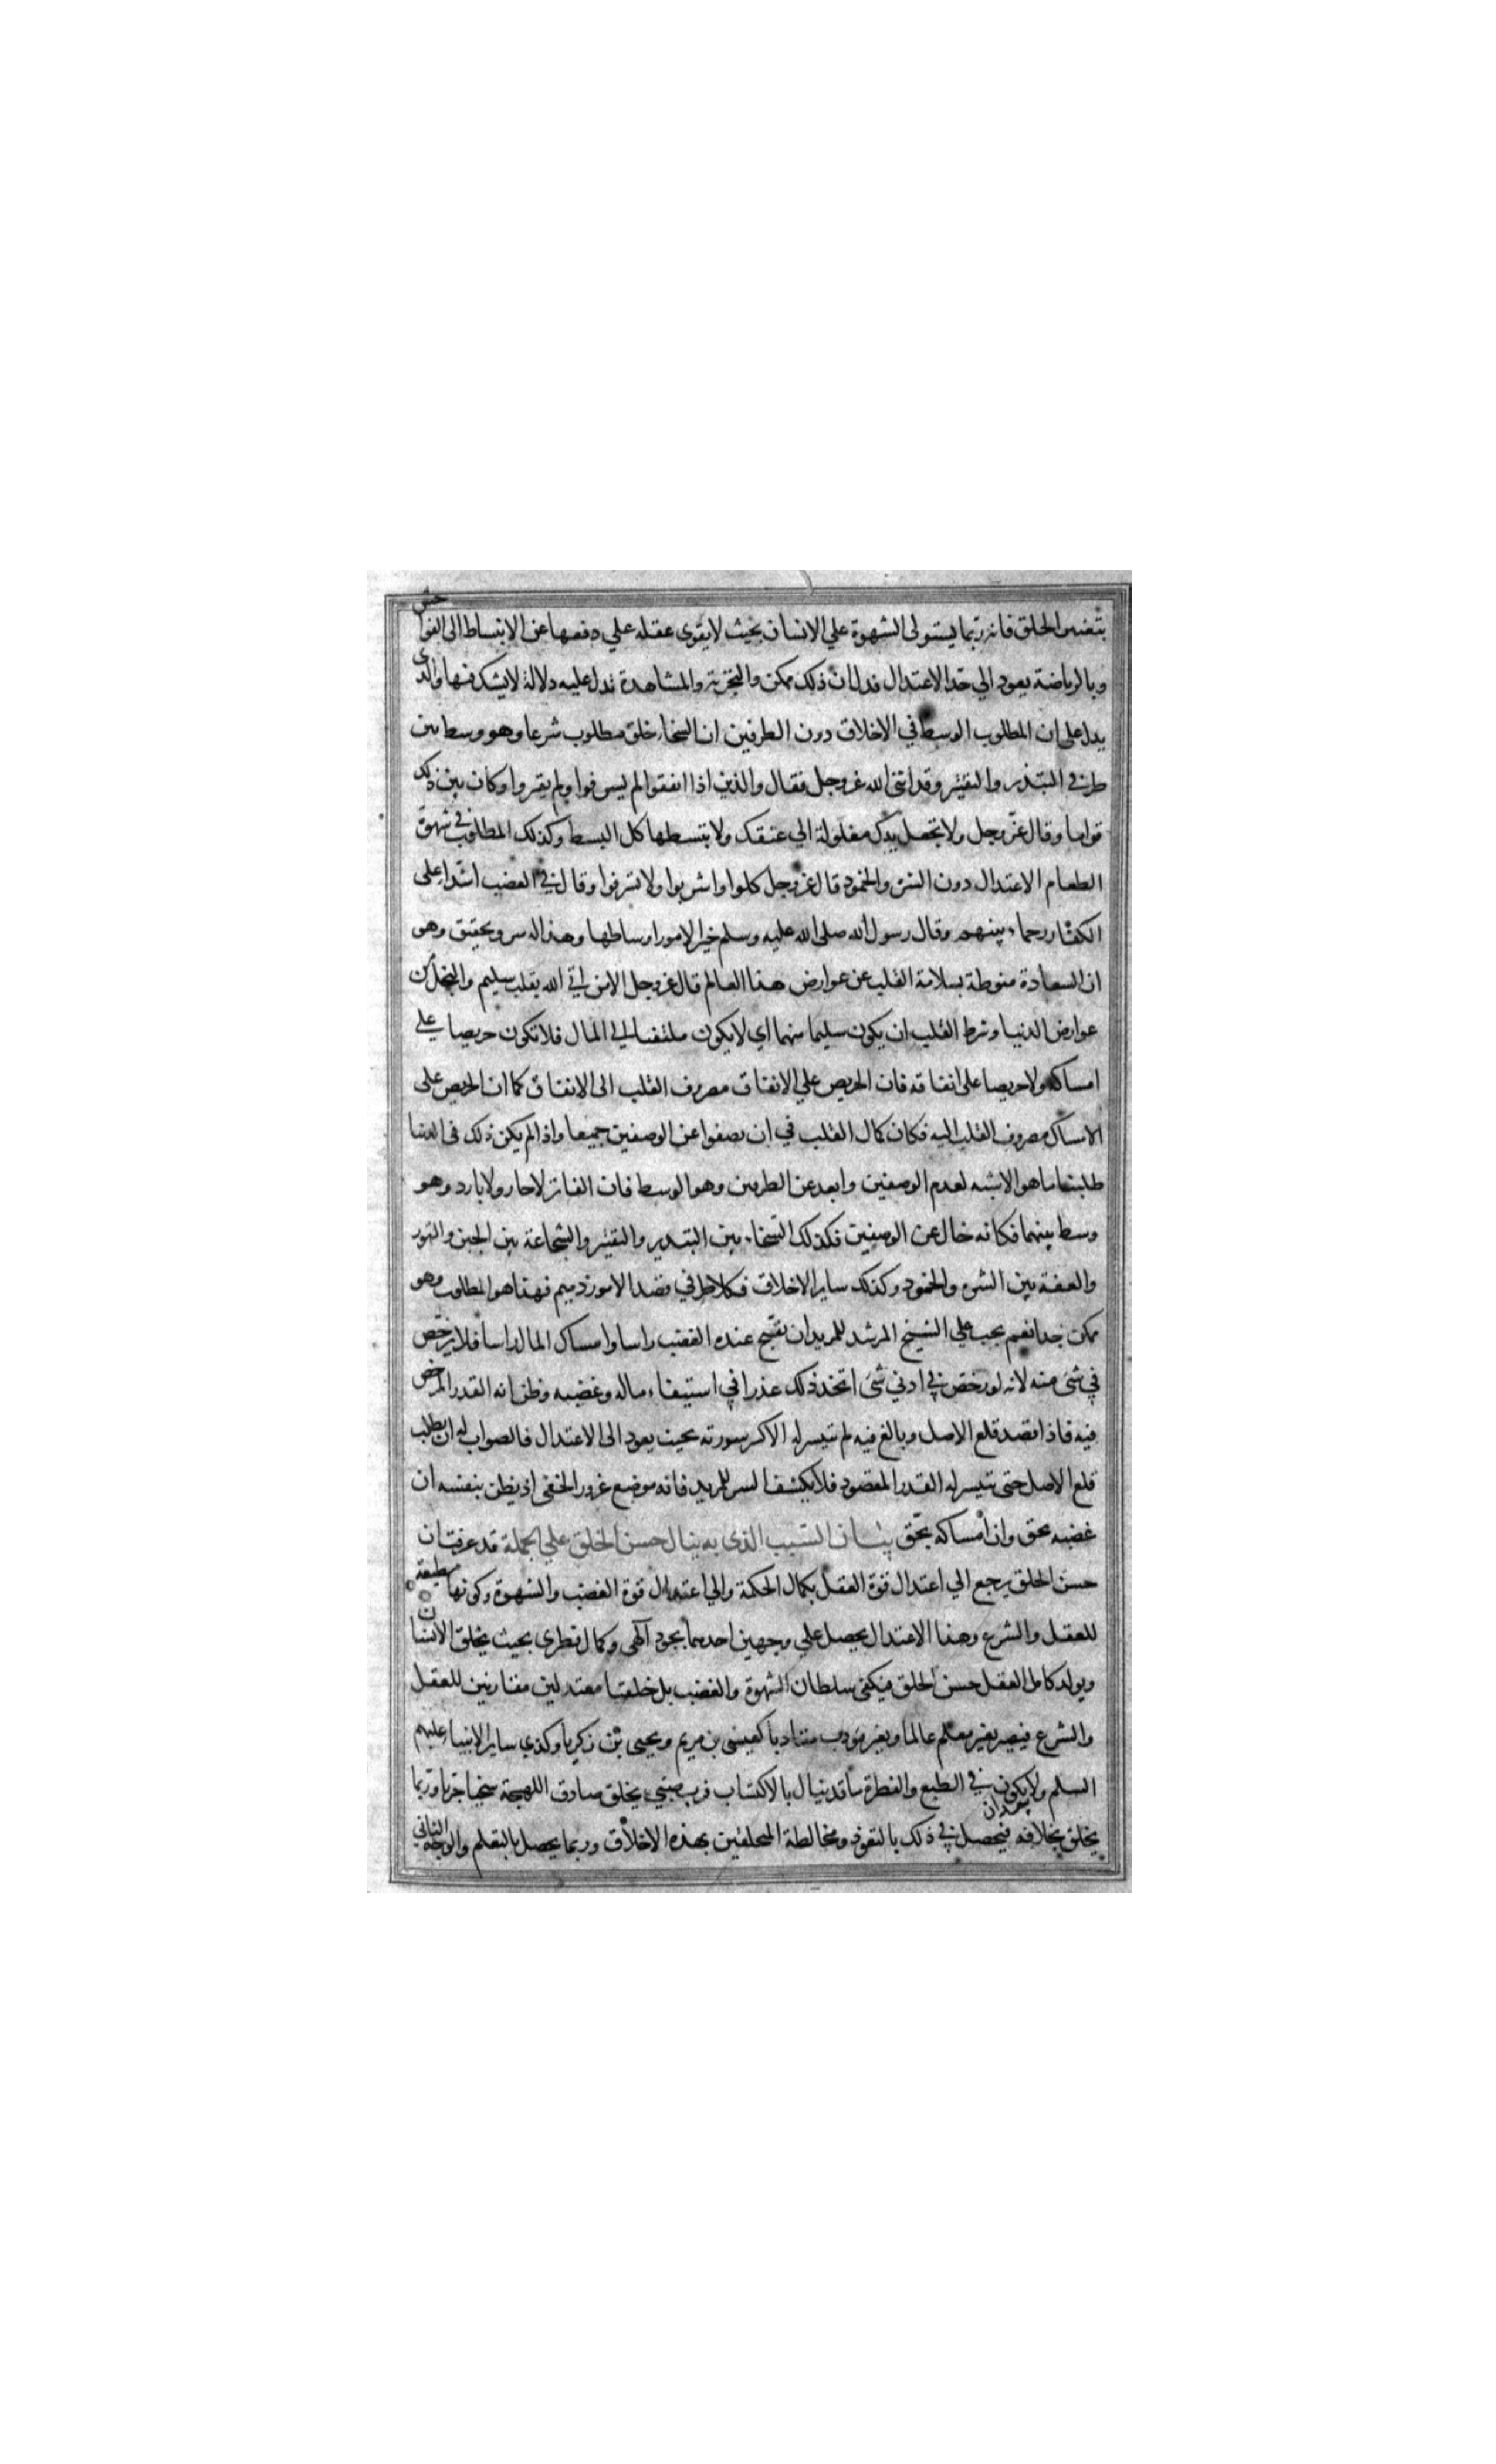 بتغير الخلق فانه ربما يستولى الشهوة علي الانسان بحيث لا يقوى عقله علي دفعها عن الانبساط الى الفواحش
وبالرياضة يعود الي حد الاعتدال فدل ان ذلك ممكن والتجربة والمشاهدة تدل عليه دلالة لا يشك فيها والذى
يدل على ان المطلوب الوسط في الاخلاق دون الطرفين ان السخاء خلق مطلوب شرعا وهو وسط بين
طرفي التبذير والتقتير وقد اثنى الله عز وجل فقال والذين اذا انفقوا لم يسرفوا ولم يقتروا وكان بين ذلك
قواما وقال عز وجل ولا تجعل يدك مغلولة الي عنقك ولا تبسطها كل البسط وكذلك المطلوب في شهوة
الطعام الاعتدال دون الشره والخمود قال عز وجل كلوا واشربوا ولا تسرفوا وقال في الغضب اشداء على
الكفار رحماء بينهم وقال رسول الله صلى الله عليه وسلم خير الامور اوساطها وهذا له سر وتحقيق وهو
ان السعادة منوطة بسلامة القلب عن عوارض هذا العالم قال عز وجل الا من اتي الله بقلب سليم والبخل من
عوارض الدنيا وشرط القلب ان يكون سليما منهما اي لا يكون ملتفتا الي المال فلا تكون حريصا علي
امساكه ولا حريصا على انفاقه فان الحريص علي الانفاق مصروف القلب الى الانفاق كما ان الحريص على
الامساك مصروف القلب اليه فكان كمال القلب في ان يصفوا عن الوصفين جميعا واذا لم يكن ذلك فى الدنيا
طلبنا ما هو الاشبه لعدم الوصفين وابعد عن الطرفين وهو الوسط فان الفاتر لا حار ولا بارد وهو
وسط بينهما فكانه خال عن الوصفين فكذلك السخاء بين التبذير والتقتير والشجاعة بين الجبن والتهور
والعفة بين الشره والخمود وكذلك ساير الاخلاق فكلا طرفي قصد الامور ذميم فهذا هو المطلوب وهو
ممكن جدا نعم يجب علي الشيخ المرشد للمريد ان يقبح عنده الغضب راسا وامساك المال راسا فلا يرخص
في شئ منه لانه لو رخص في ادني شئ اتخذ ذلك عذرا في استيفاء ماله وغضبه وظن انه القدر المرخص
فيه فاذا قصد قلع الاصل وبالغ فيه لم تتيسر له الا كسر سورته بحيث يعود الى الاعتدال فالصواب له ان يطلب
قلع الاصل حتى تتيسر له القدر المقصود فلا يكشف السر للمريد فانه موضع غرور الحمقى اذ يظن بنفسه ان
غضبه بحق وان امساكه بحق بيان السبب الذى به ينال حسن الخلق على الجملة قد عرفت ان
حسن الخلق يرجع الي اعتدال قوة العقل بكمال الحكمة والي اعتدال قوة الغضب والشهوة وكونها مطيعة
للعقل والشرع وهذا الاعتدال يحصل علي وجهين احدهما بجود آلهى وكمال فطرى بحيث يخلق الانسان
ويولد كامل العقل حسن الخلق فيكفى سلطان الشهوة والغضب بل خلقتا معتدلين مقارنين للعقل
والشرع فيصير بغير معلم عالما وبغير مؤدب متادبا كعيسى بن مريم ويحيى بن زكريا وكذي ساير الانبياء عليهم
السلم ولا يكون في الطبع والفطرة ما قد ينال بالاكتساب فرب صبي يخلق صادق اللهجة سخيا جريا وربما
يخلق بخلافه فيحصل في ذلك بالتعود ومخالطة المتخلقين بهذه الاخلاق وربما يحصل بالتعلم والوجه الثاني